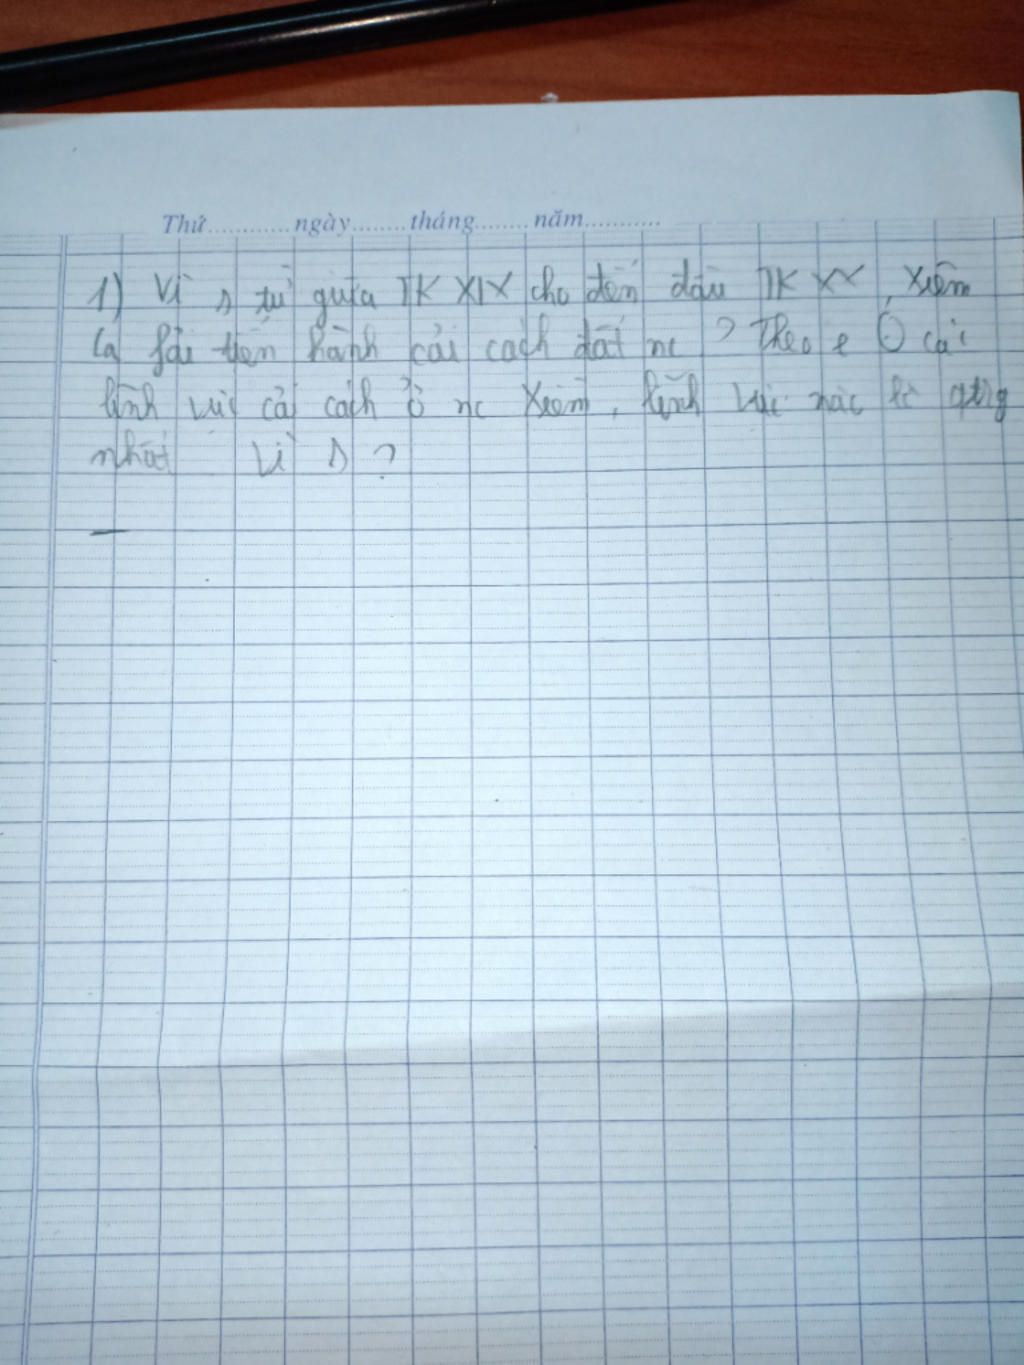 Thứ............ngày........tháng........năm............
1) Vì s từ giữa TK XIX cho đến đầu TK XX, Xiêm
lại fải tiến hành cải cách đất nc ? Theo e (-) các
lĩnh vực cải cách ở nc Xiêm, lĩnh vực nào là qtrg
nhất Vì s ?